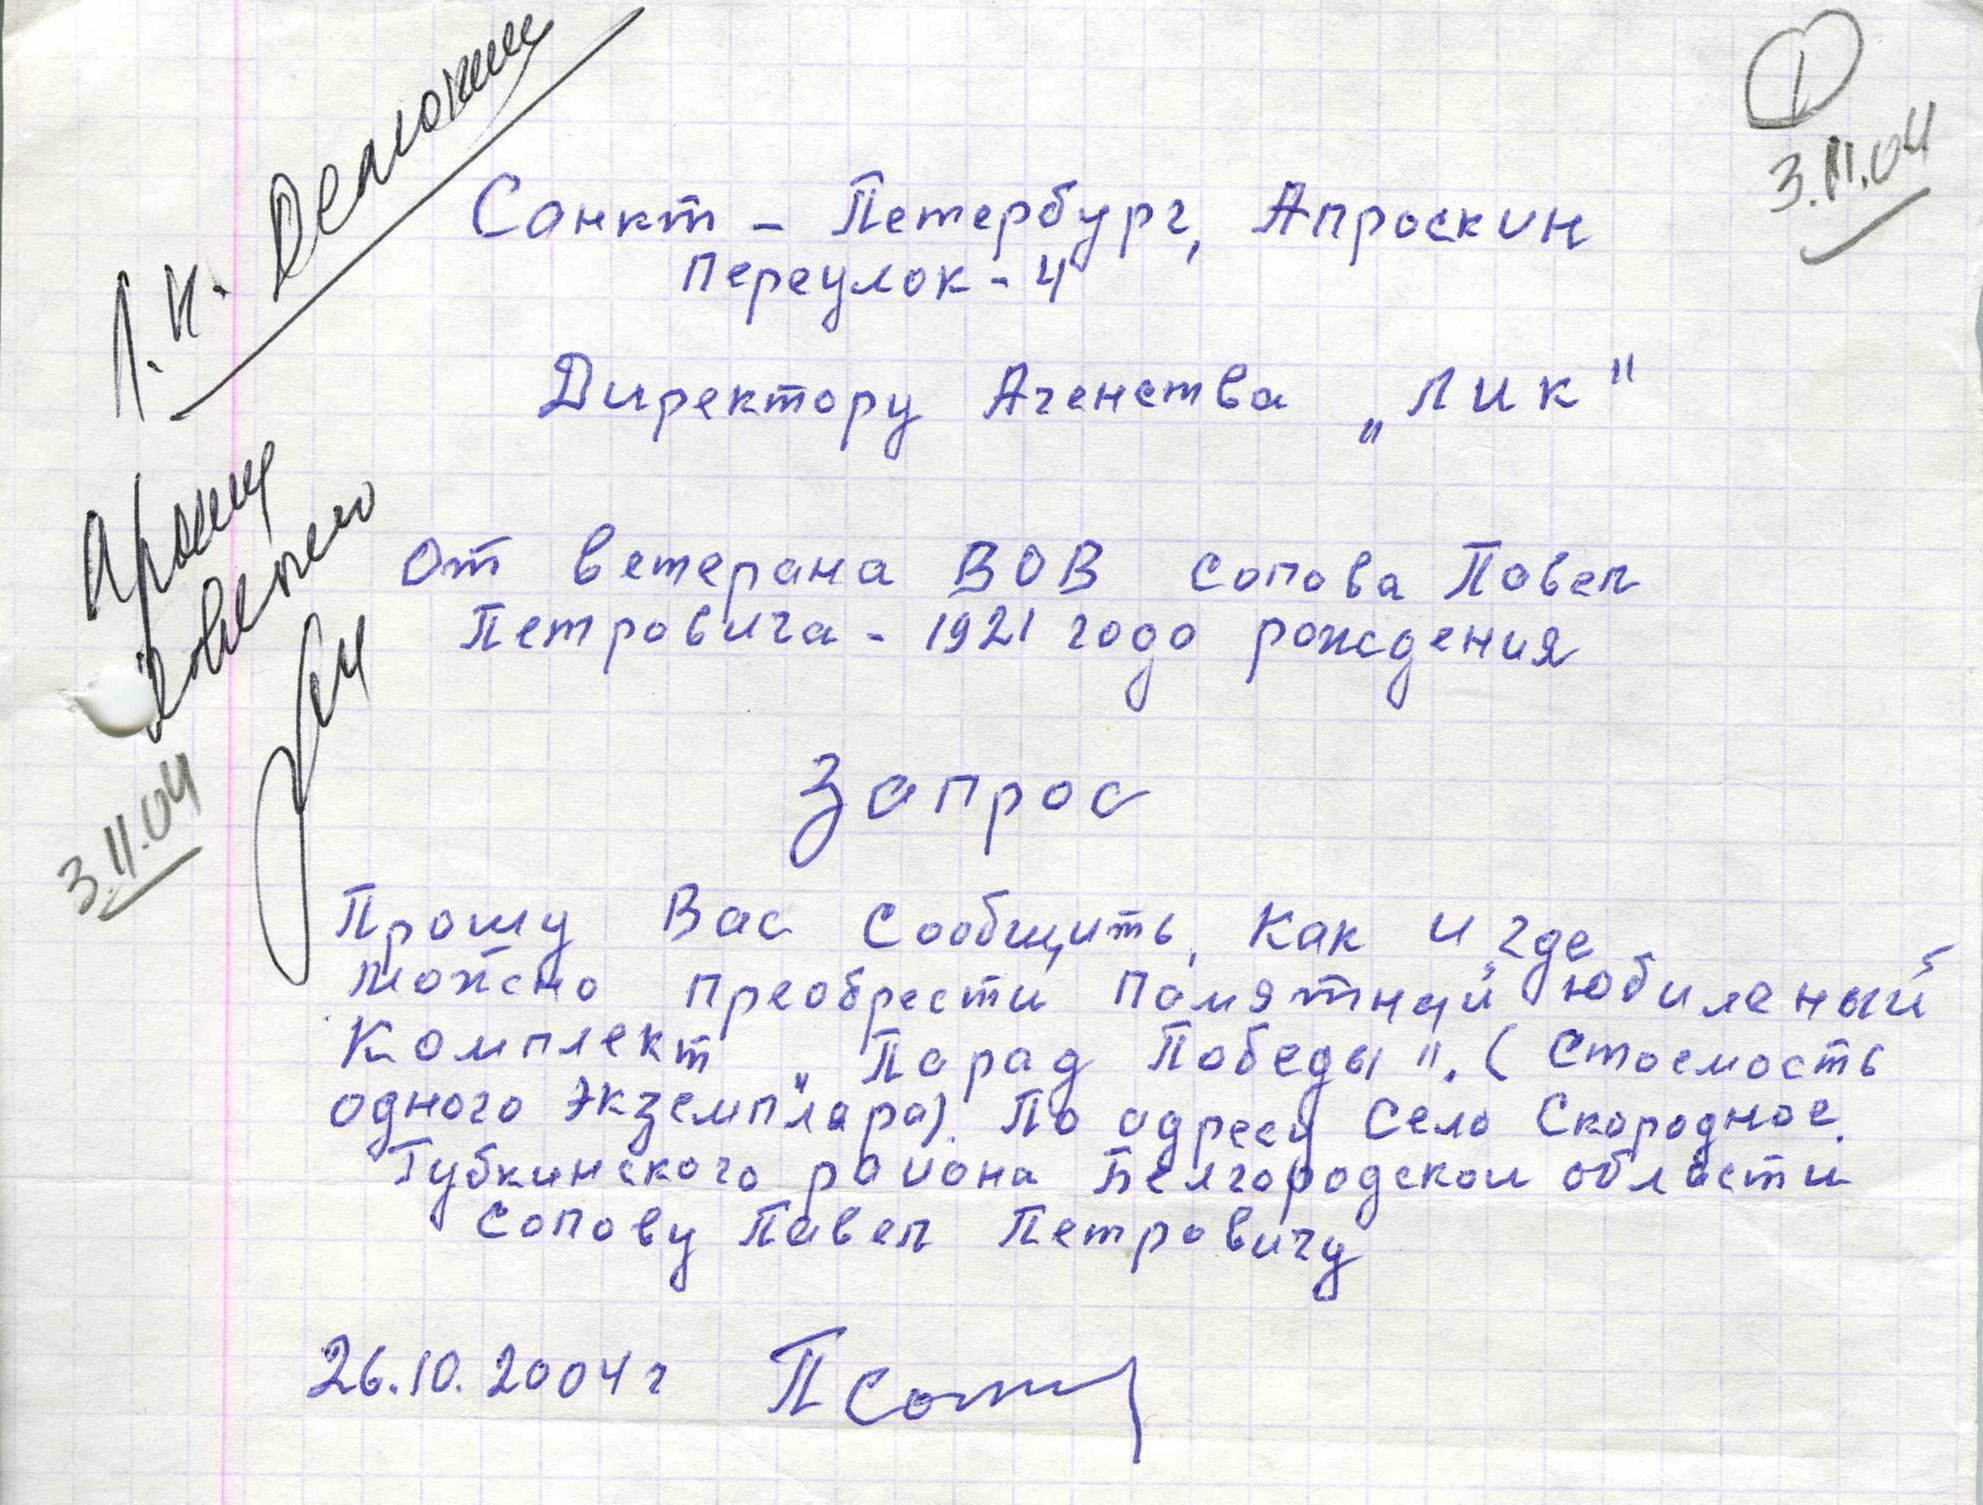 1
3.11.04
Санкт - Петербург, Апроскин
переулок - 4
Директору Агенства „ЛИК"
От ветерана ВОВ Сопова Павел
Петровича - 1921 года рождения
Запрос
Прошу Вас Сообщить, Как и где
можно преобрести памятный юбиленый
Комплект „Парад Победы". (Стоемость
одного экземпляра). По адресу Село Скородное.
Губкинского района Белгородской области
Сопову Павел Петровичу
26.10.2004 г П Сопов
Прошу
3.11.04